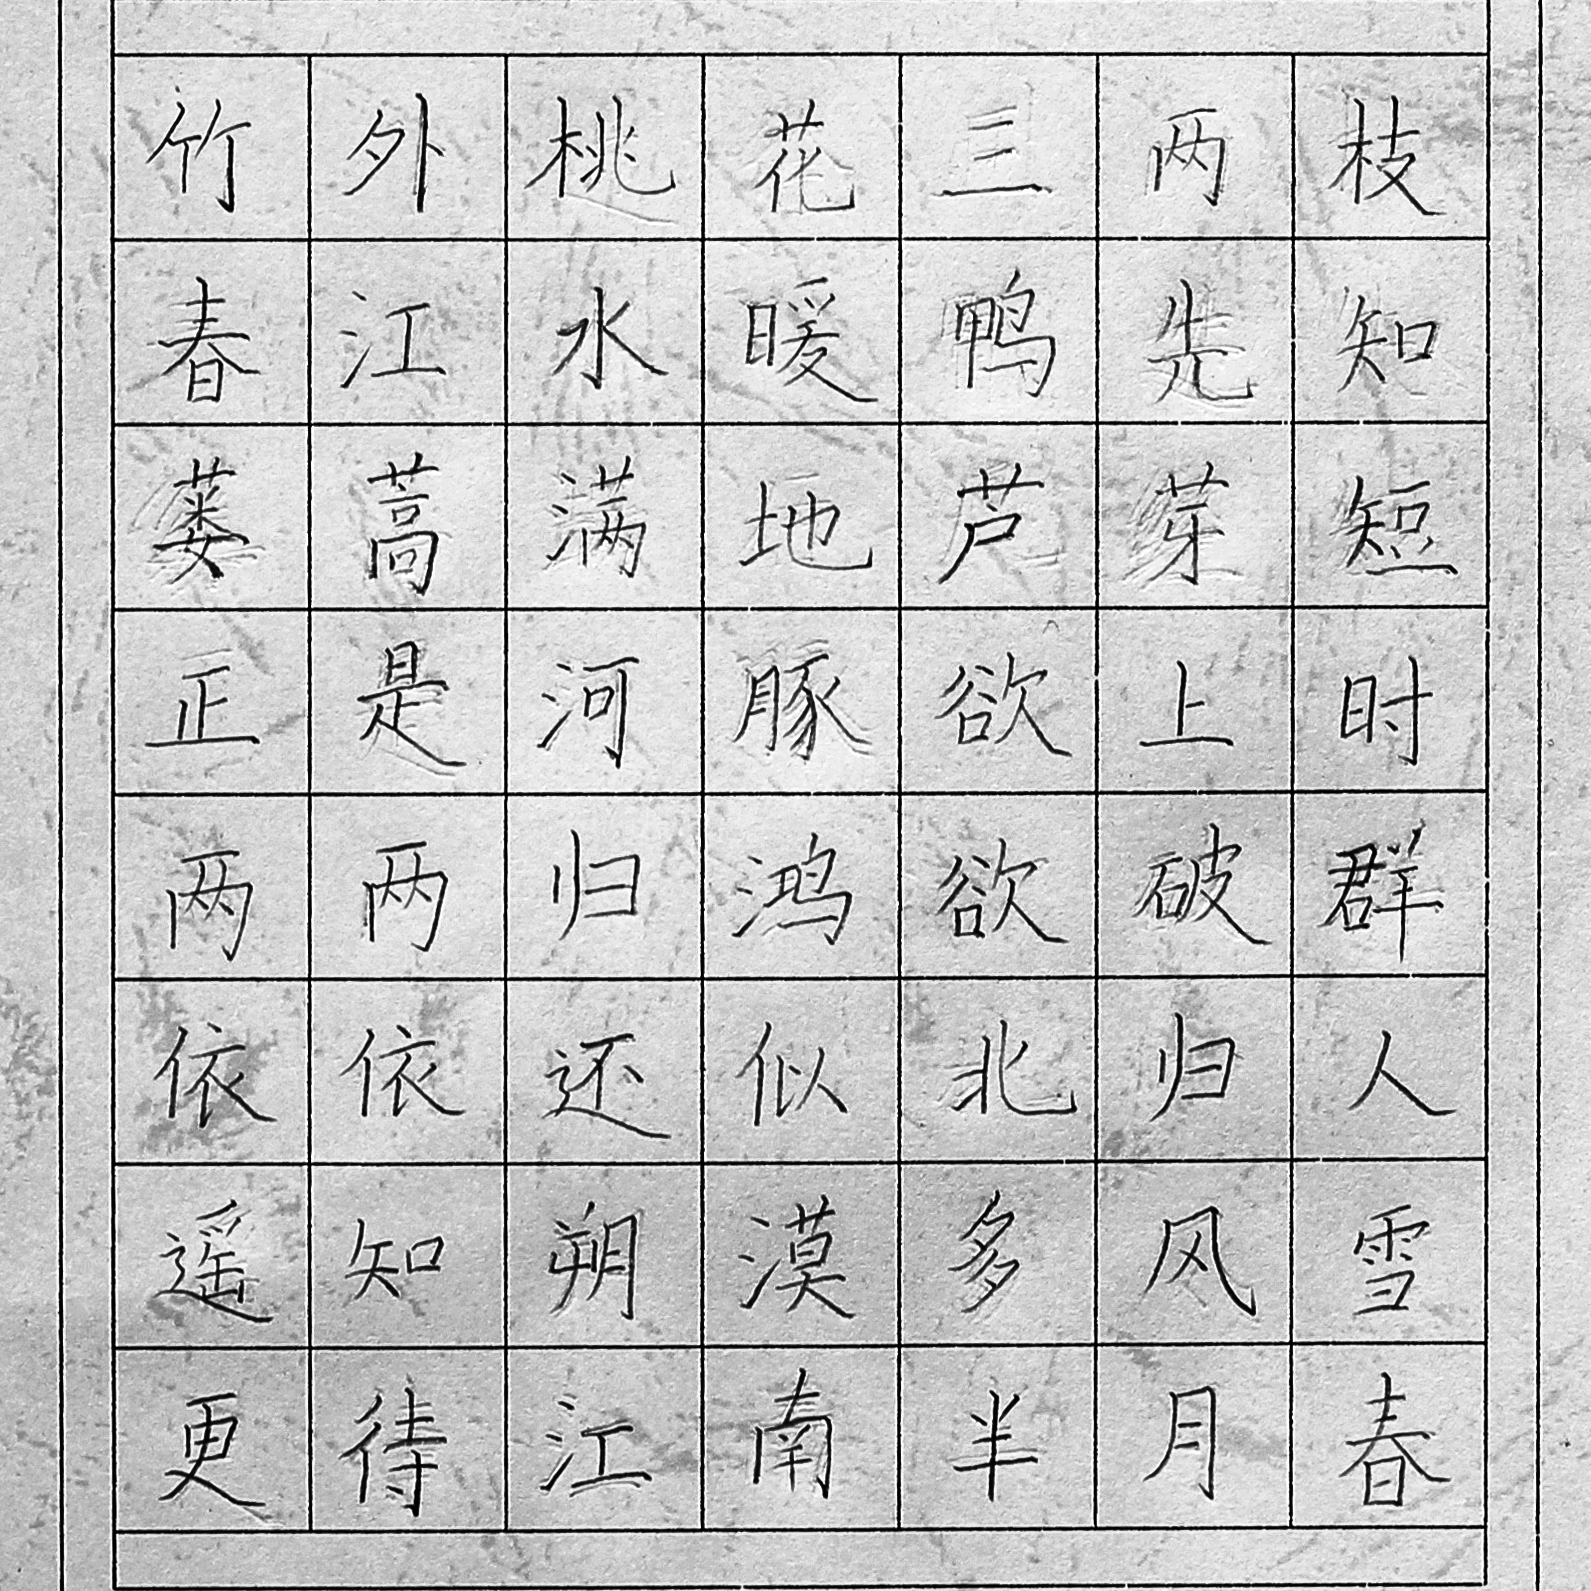 竹外桃花三两枝
春江水暖鸭先知
蒌蒿满地芦芽短
正是河豚欲上时
两两归鸿欲破群
依依还似北归人
遥知朔漠多风雪
更待江南半月春